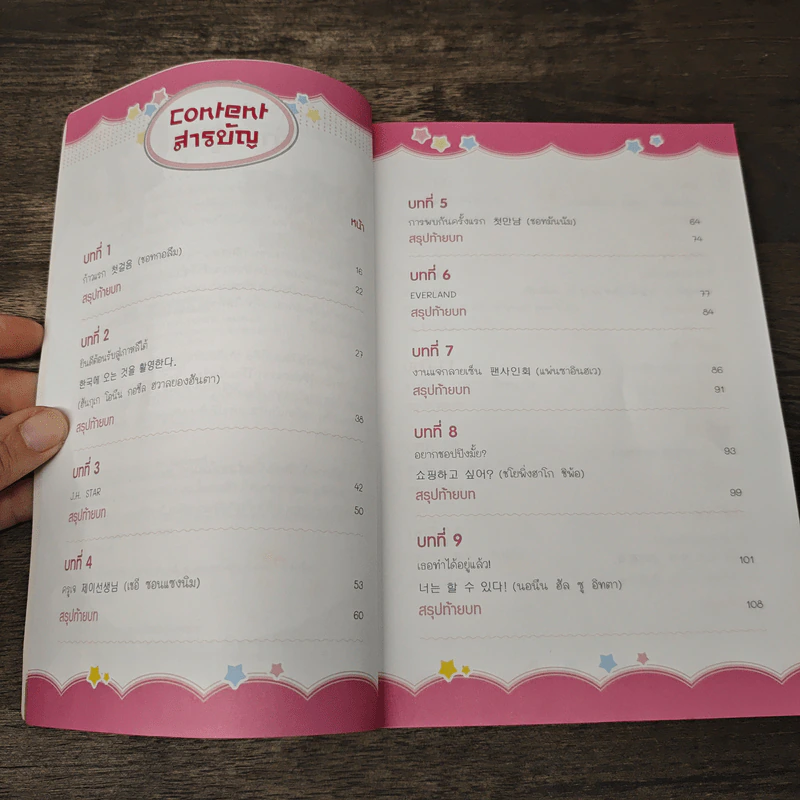 Content
สารบัญ
หน้า
บทที่ 1
ก้าวแรก 첫걸음 (ชอทกอลึม) 16
สรุปท้ายบท 22
บทที่ 2
ยินดีต้อนรับสู่เกาหลีใต้ 27
한국에 오는 것을 환영한다.
(ฮันกุเก โอนึน กอซึล ฮวานยองฮันดา)
สรุปท้ายบท 38
บทที่ 3
J.H. STAR 42
สรุปท้ายบท 50
บทที่ 4
ครูเจ 제이선생님 (เชอี ซอนแซงนิม) 53
สรุปท้ายบท 60
บทที่ 5
การพบกันครั้งแรก 첫만남 (ชอทมันนัม) 64
สรุปท้ายบท 74
บทที่ 6
EVERLAND 77
สรุปท้ายบท 84
บทที่ 7
งานแจกลายเซ็น 팬사인회 (แพ่นซาอินฮเว) 86
สรุปท้ายบท 91
บทที่ 8
อยากชอปปิงมั้ย? 93
쇼핑하고 싶어? (ชโยพิ่งฮาโก ชิพ่อ)
สรุปท้ายบท 99
บทที่ 9
เธอทำได้อยู่แล้ว! 101
너는 할 수 있다! (นอนึน ฮัล ซู อิทตา)
สรุปท้ายบท 108